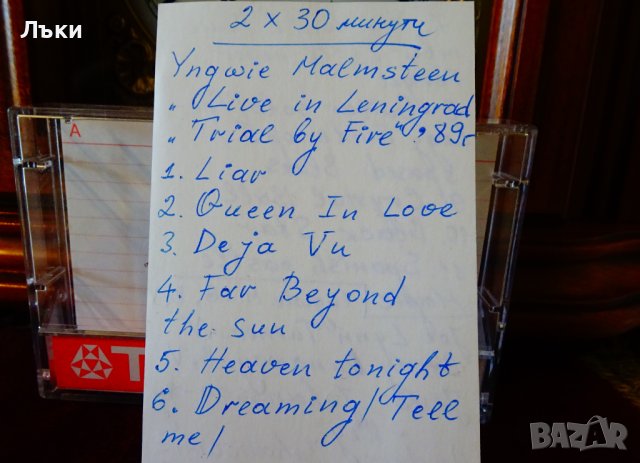 Лъки
2 x 30 минути
Yngwie Malmsteen
„Live in Leningrad
„Trial by Fire" 89г
1. Liar
2. Queen In Love
3. Deja Vu
4. Far Beyond
the sun
5. Heaven tonight
6. Dreaming/Tell
me/
A
BAZAR